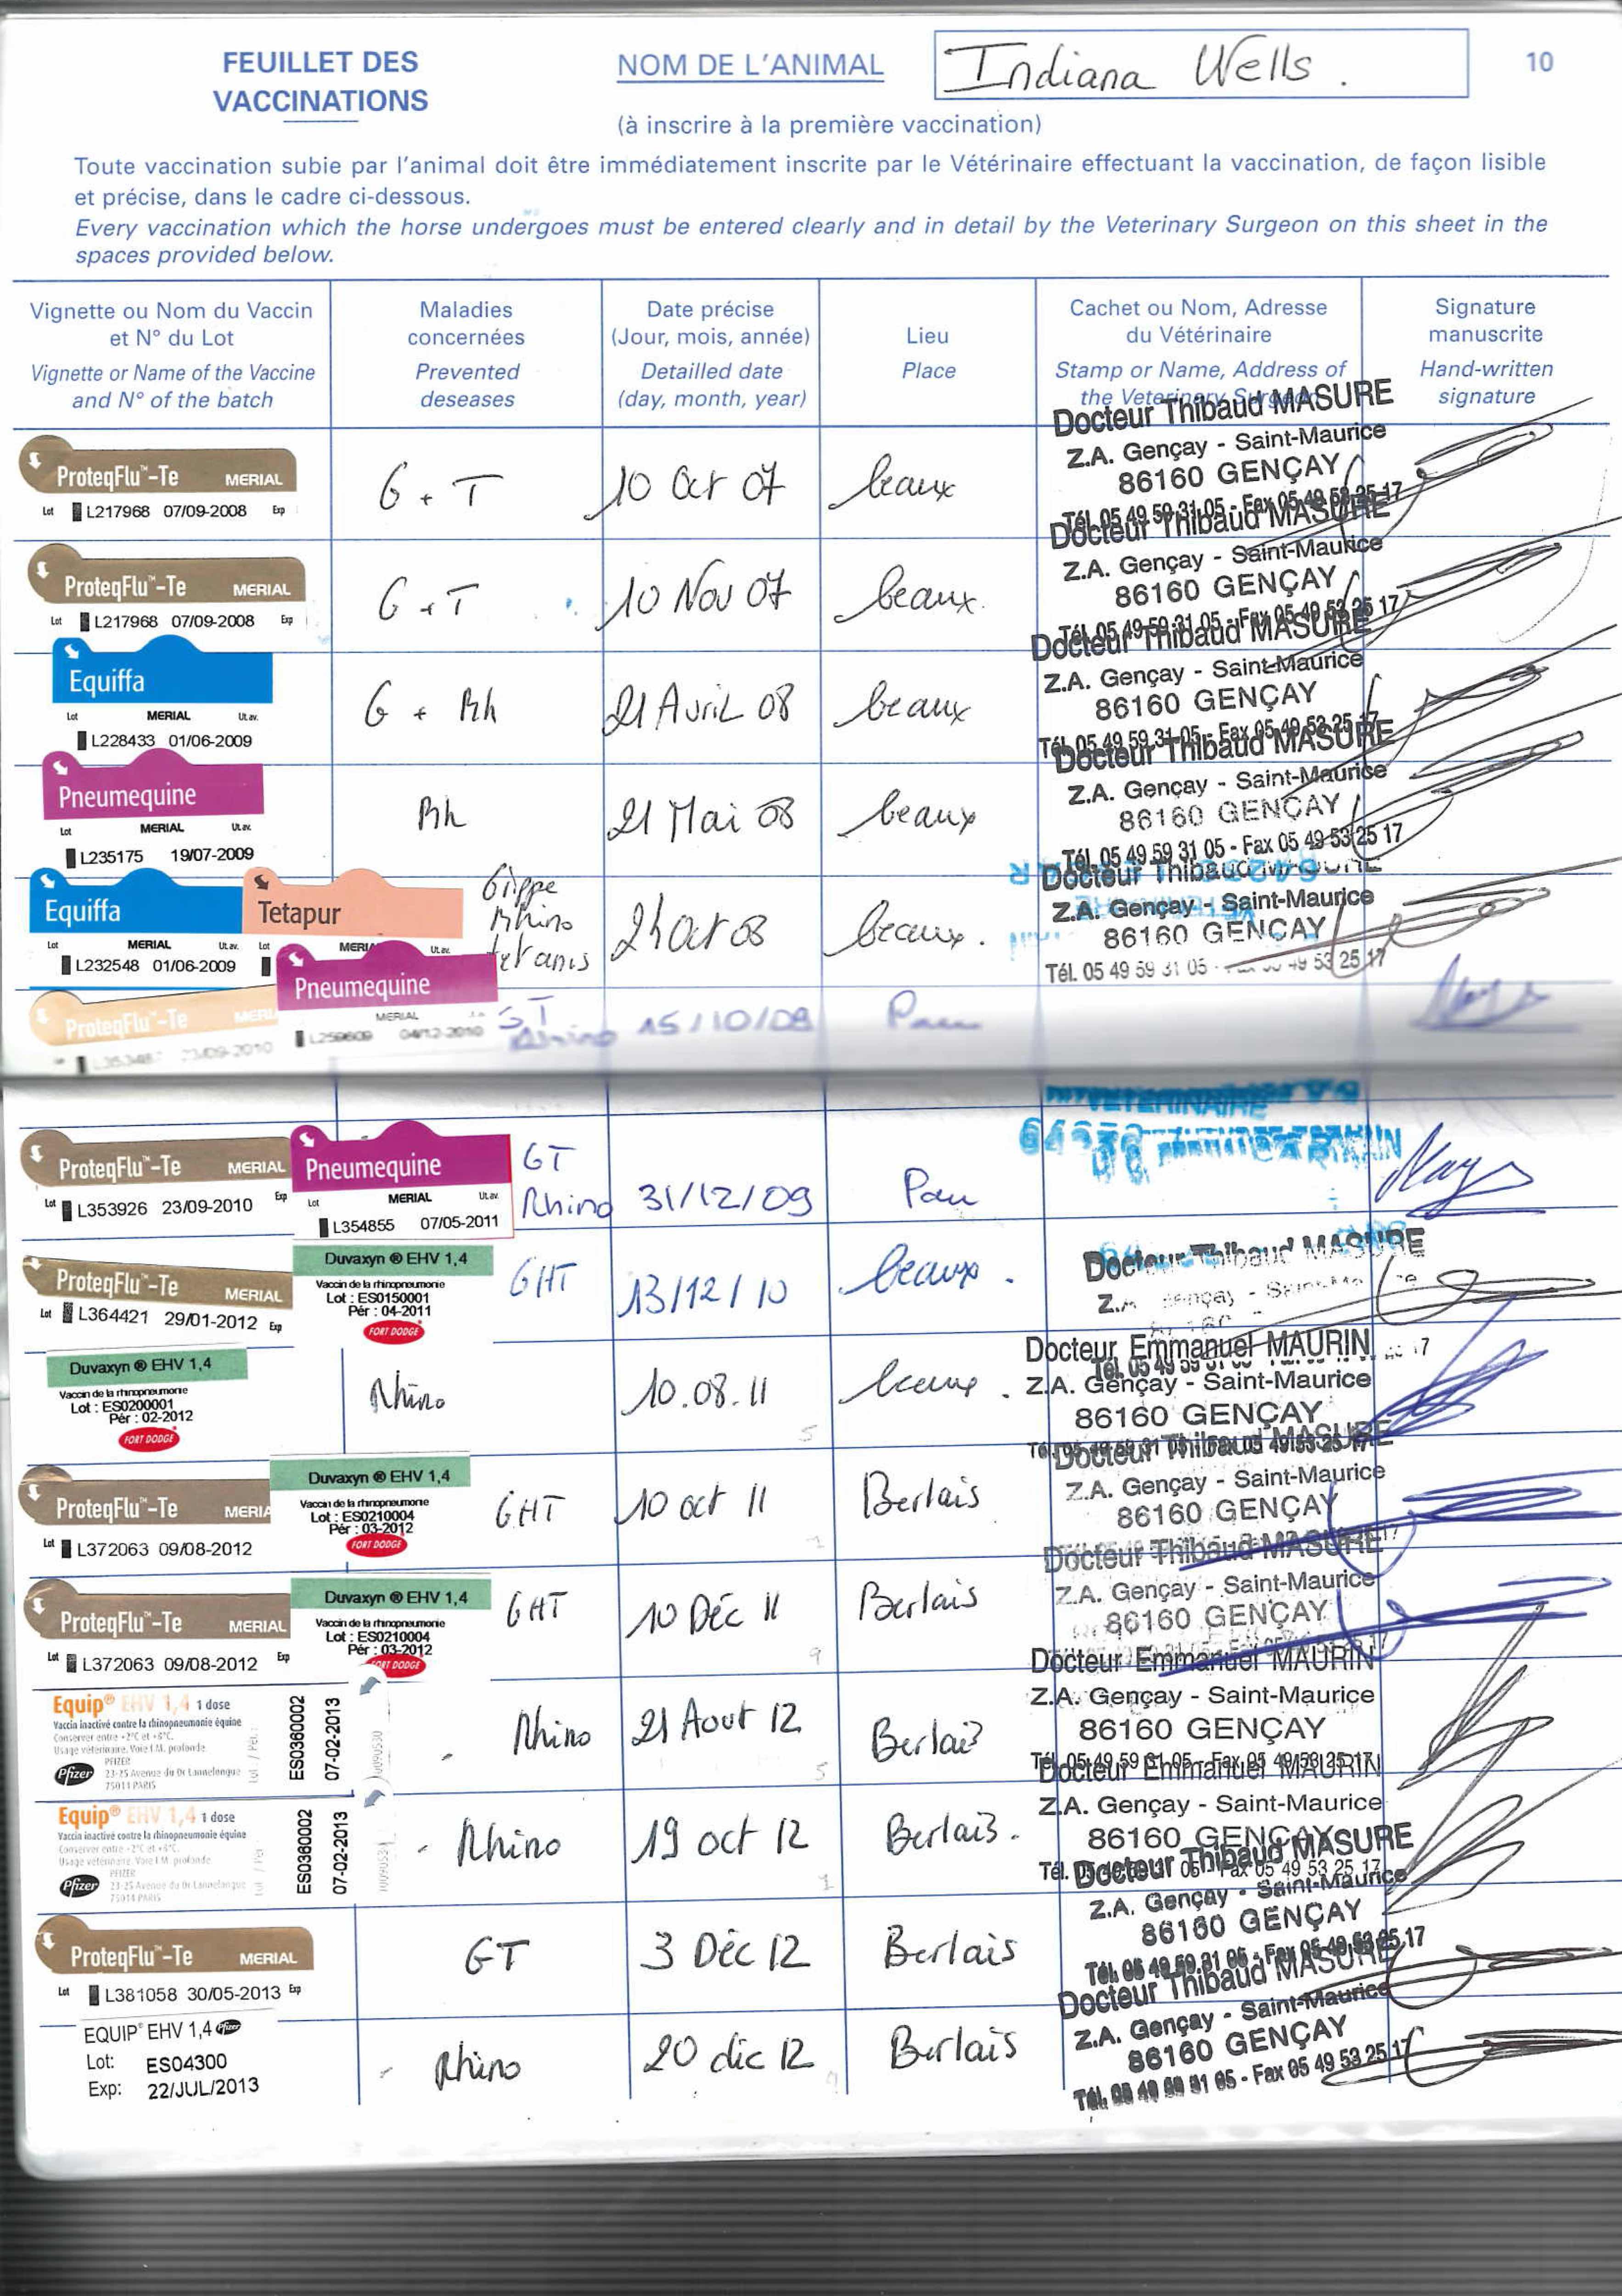 FEUILLET DES
VACCINATIONS
NOM DE L'ANIMAL
Indiana Wells.
10
(à inscrire à la première vaccination)
Toute vaccination subie par l'animal doit être immédiatement inscrite par le Vétérinaire effectuant la vaccination, de façon lisible
et précise, dans le cadre ci-dessous.
Every vaccination which the horse undergoes must be entered clearly and in detail by the Veterinary Surgeon on this sheet in the
spaces provided below.
Vignette ou Nom du Vaccin
et N° du Lot
Vignette or Name of the Vaccine
and N° of the batch
Maladies
concernées
Prevented
deseases
Date précise
(Jour, mois, année)
Detailled date
(day, month, year)
Lieu
Place
Cachet ou Nom, Adresse
du Vétérinaire
Stamp or Name, Address of
the Veterinary Surgeon
Signature
manuscrite
Hand-written
signature
ProteqFlu™-Te MERIAL
Lot L217968 07/09-2008 Exp
G + T
10 Oct 07
beaux
Docteur Thibaud MASURE
Z.A. Gençay - Saint-Maurice
86160 GENÇAY
Tél. 05 49 59 31 05 - Fax 05 49 53 25 17
ProteqFlu™-Te MERIAL
Lot L217968 07/09-2008 Exp
G + T
10 Nov 07
beaux.
Docteur Thibaud MASURE
Z.A. Gençay - Saint-Maurice
86160 GENÇAY
Tél. 05 49 59 31 05 - Fax 05 49 53 25 17
Equiffa
Lot MERIAL Ut. av.
L228433 01/06-2009
G + Rh
21 Avril 08
beaux
Docteur Thibaud MASURE
Z.A. Gençay - Saint-Maurice
86160 GENÇAY
Tél. 05 49 59 31 05 - Fax 05 49 53 25 17
Pneumequine
Lot MERIAL Ut. av.
L235175 19/07-2009
Rh
21 Mai 08
beaux
Docteur Thibaud MASURE
Z.A. Gençay - Saint-Maurice
86160 GENÇAY
Tél. 05 49 59 31 05 - Fax 05 49 53 25 17
Equiffa
Lot MERIAL Ut. av.
L232548 01/06-2009
Tetapur
Lot Ut. av.
Grippe
Rhino
tetanis
Oct 08
beaux.
Docteur Thibaud
Z.A. Gençay - Saint-Maurice
86160 GENÇAY
Tél. 05 49 59 31 05 - 49 53 25 17
ProteqFlu™-Te
23/09-2010
Pneumequine
MERIAL
L259609 04/12-2010
Rhino
15/10/09
Pau
ProteqFlu™-Te MERIAL
Lot L353926 23/09-2010 Exp
Pneumequine
Lot MERIAL Ut. av.
L354855 07/05-2011
GT
Rhino
31/12/09
Pau
ProteqFlu™-Te MERIAL
Lot L364421 29/01-2012 Exp
Duvaxyn ® EHV 1,4
Vaccin de la rhinopneumonie
Lot : ES0150001
Pér : 04-2011
FORT DODGE
GHT
13/12/10
beaux.
Docteur Thibaud MASURE
Duvaxyn ® EHV 1,4
Vaccin de la rhinopneumonie
Lot : ES0200001
Pér : 02-2012
FORT DODGE
Rhino
10.08.11
beaux.
Docteur Emmanuel MAURIN
Z.A. Gençay - Saint-Maurice
86160 GENÇAY
ProteqFlu™-Te MERIA
Lot L372063 09/08-2012
Duvaxyn ® EHV 1,4
Vaccin de la rhinopneumonie
Lot : ES0210004
Pér : 03-2012
FORT DODGE
GHT
10 oct 11
Berlais
Docteur Thibaud MASURE
Z.A. Gençay - Saint-Maurice
86160 GENÇAY
ProteqFlu™-Te MERIAL
Lot L372063 09/08-2012 Exp
Duvaxyn ® EHV 1,4
Vaccin de la rhinopneumonie
Lot : ES0210004
Pér : 03-2012
FORT DODGE
GHT
10 Déc 11
Berlais
Docteur Thibaud MASURE
Z.A. Gençay - Saint-Maurice
86160 GENÇAY
Equip® EHV 1,4 1 dose
Vaccin inactivé contre la rhinopneumonie équine
Conserver entre +2°C et +8°C.
Usage vétérinaire. Voie I.M. profonde
PFIZER
Pfizer
23-25 Avenue du Dr Lannelongue
75014 PARIS
ES0360002
07-02-2013
Rhino
21 Aout 12
Berlais
Docteur Emmanuel MAURIN
Z.A. Gençay - Saint-Maurice
86160 GENÇAY
Tél. 05 49 59 31 05 - Fax 05 49 53 25 17
Equip® EHV 1,4 1 dose
Vaccin inactivé contre la rhinopneumonie équine
Conserver entre +2°C et +8°C.
Usage vétérinaire. Voie I.M. profonde
PFIZER
Pfizer
23-25 Avenue du Dr Lannelongue
75014 PARIS
ES0360002
07-02-2013
- Rhino
19 oct 12
Berlais.
Docteur Emmanuel MAURIN
Z.A. Gençay - Saint-Maurice
86160 GENÇAY
Tél. 05 49 59 31 05 - Fax 05 49 53 25 17
ProteqFlu™-Te MERIAL
Lot L381058 30/05-2013 Exp
GT
3 Déc 12
Berlais
Docteur Thibaud MASURE
Z.A. Gençay - Saint-Maurice
86160 GENÇAY
Tél. 05 49 59 31 05 - Fax 05 49 53 25 17
EQUIP® EHV 1,4 Pfizer
Lot: ES04300
Exp: 22/JUL/2013
- Rhino
20 dic 12
Berlais
Docteur Thibaud MASURE
Z.A. Gençay - Saint-Maurice
86160 GENÇAY
Tél. 05 49 59 31 05 - Fax 05 49 53 25 17